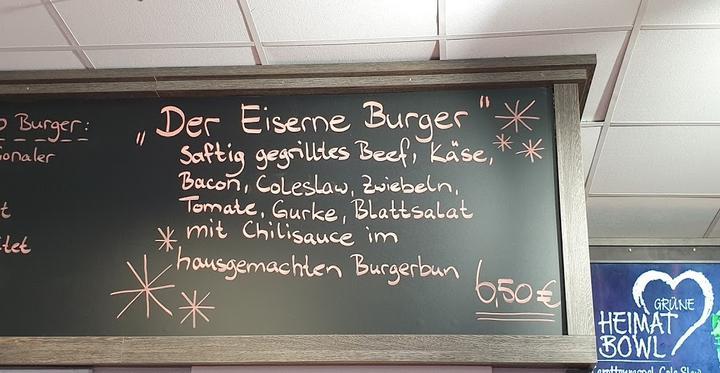 Burger:
„Der Eiserne Burger"
Saftig gegrilltes Beef, Käse,
Bacon, Coleslaw, Zwiebeln,
Tomate, Gurke, Blattsalat
mit Chilisauce im
hausgemachten Burgerbun
6,50 €
GRÜNE
HEIMAT
BOWL